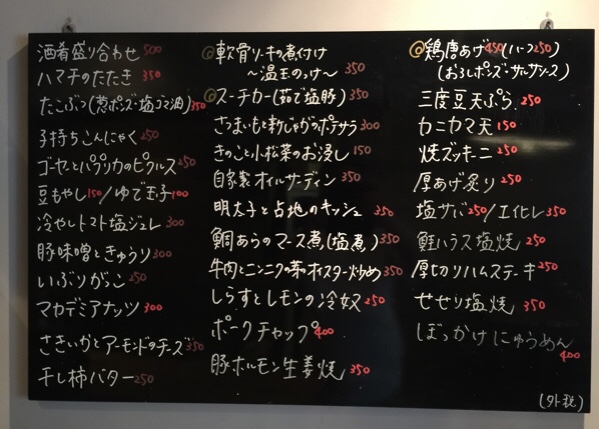 酒肴盛り合わせ 500
ハマチのたたき 350
たこぶつ(葱ポンズ・塩ゴマ油) 350
子持ちこんにゃく 250
ゴーヤとパプリカのピクルス 250
豆もやし 150/ゆで玉子 100
冷やしトマト塩ジュレ 300
豚味噌ときゅうり 300
いぶりがっこ 250
マカデミアナッツ 300
さきいかとアーモンドのチーズ 350
干し柿バター 250
◎軟骨ソーキの煮付け
～温玉のっけ～ 350
◎スーチカー(茹で塩豚) 350
さつまいもと新じゃがのポテサラ 300
きのこと小松菜のお浸し 150
自家製オイルサーディン 350
明太子と占地のキッシュ 350
鯛あらのマース煮(塩煮) 350
牛肉とニンニクの芽のオイスター炒め 350
しらすとレモンの冷奴 250
ポークチャップ 400
豚ホルモン生姜焼 350
◎鶏唐あげ 450(ハーフ 250)
(おろしポンズ・サルサソース)
三度豆天ぷら 250
カニカマ天 150
焼ズッキーニ 250
厚あげ炙り 250
塩サバ 250/エイヒレ 350
鮭ハラス塩焼 250
厚切りハムステーキ 250
せせり塩焼 350
ぼっかけにゅうめん
400
(外税)